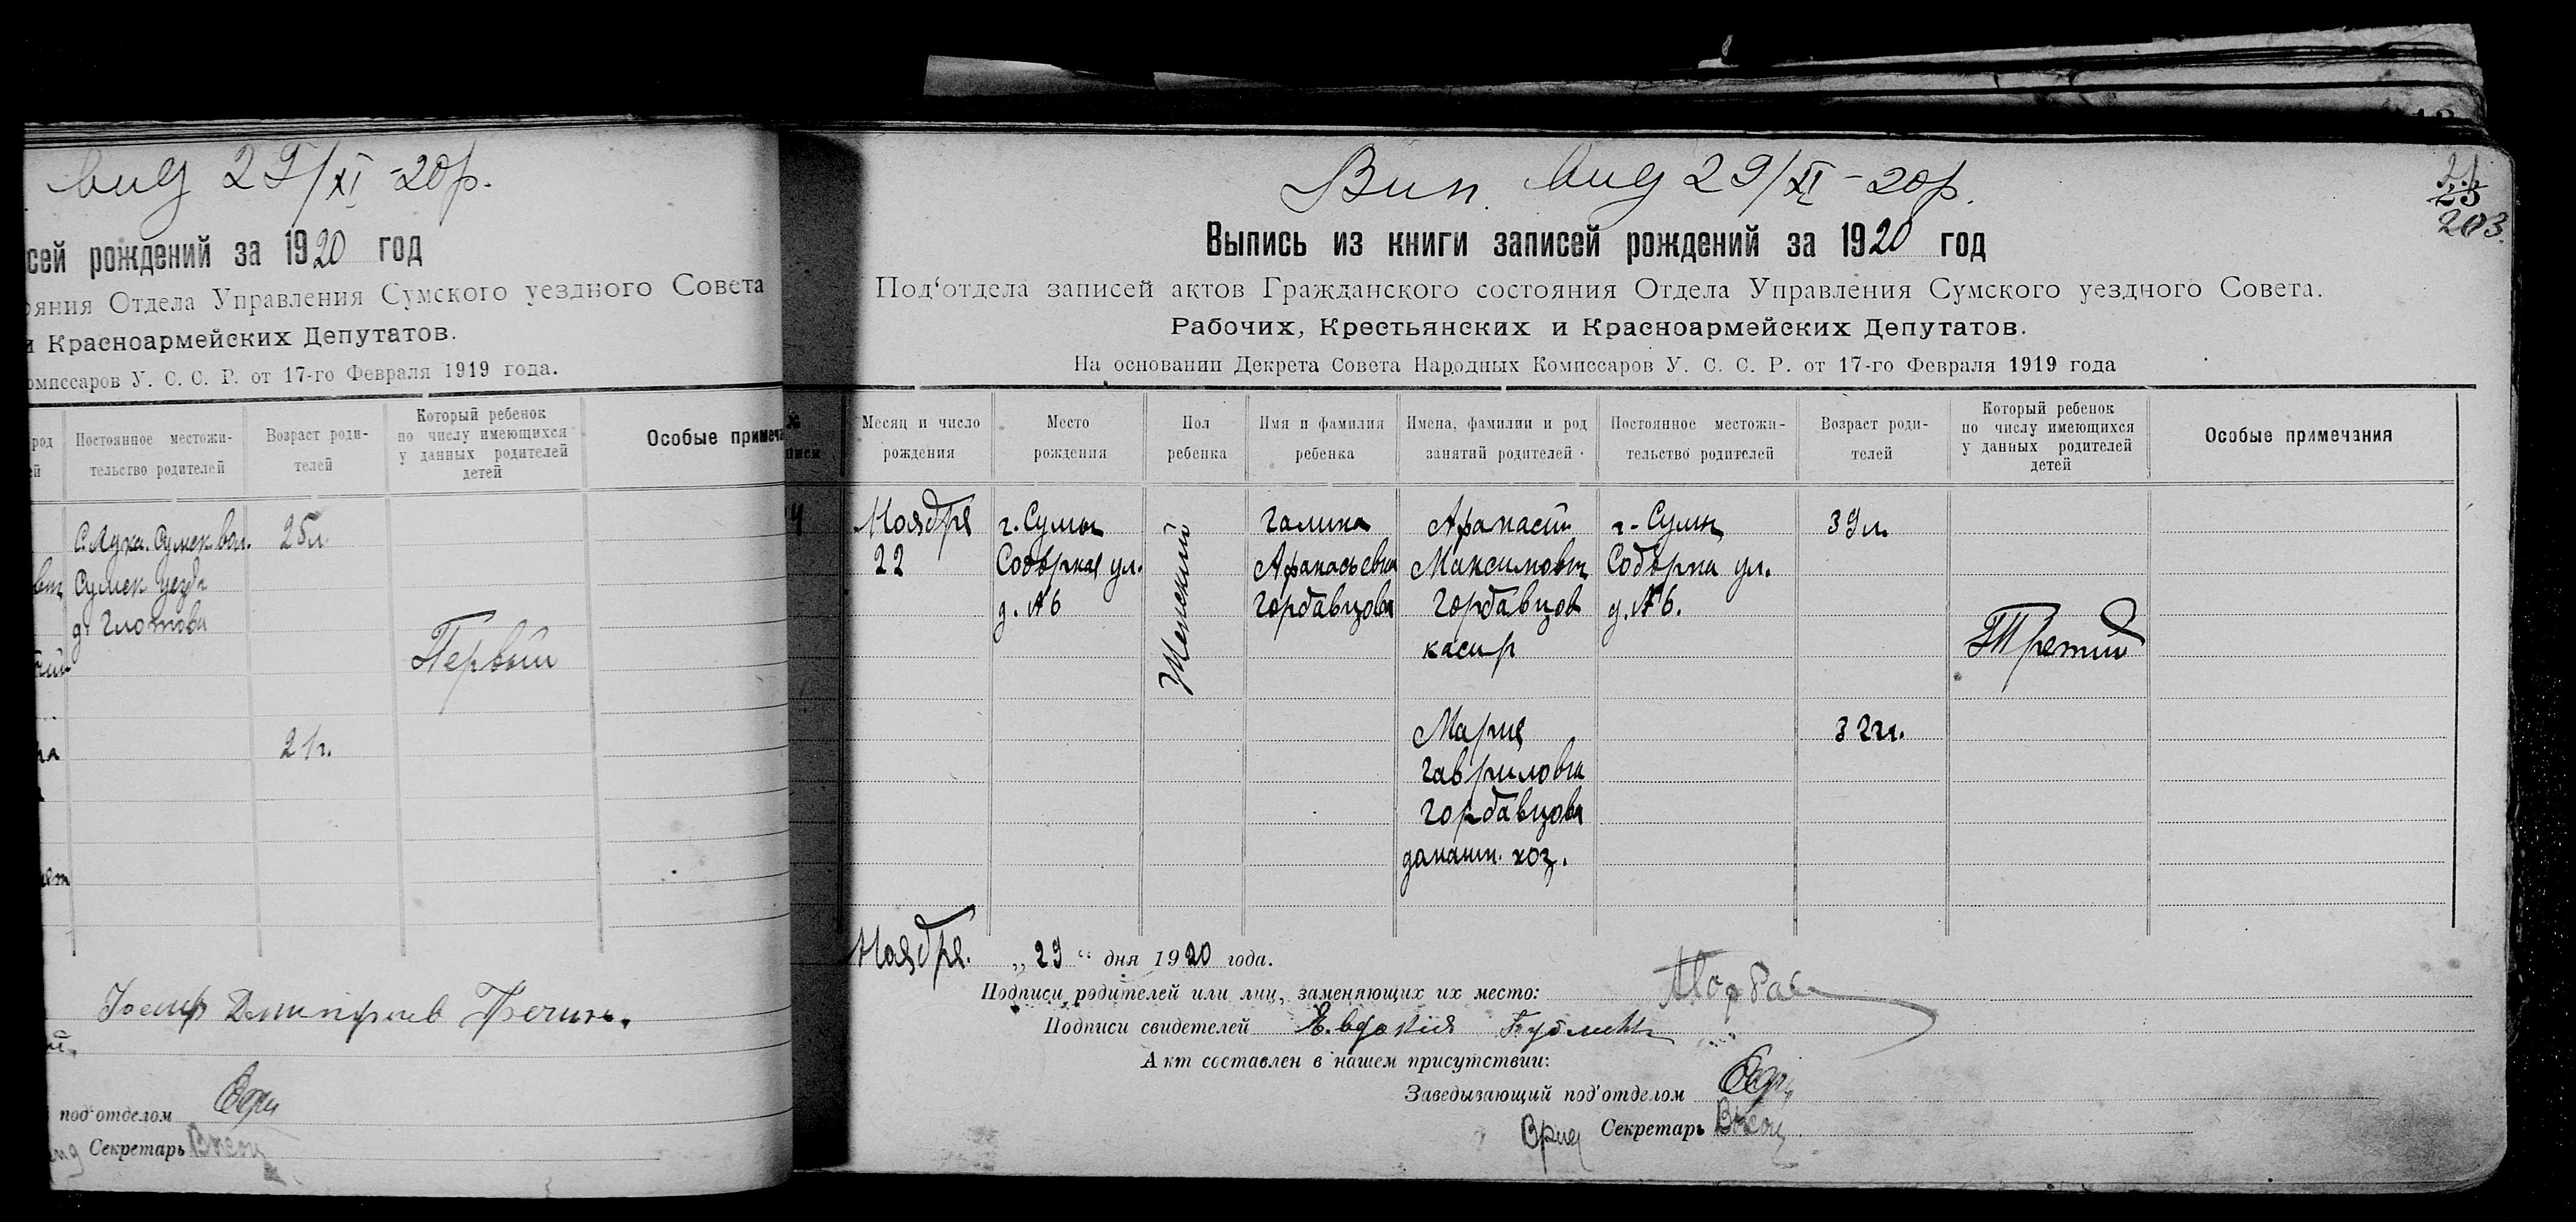 вид 29/XI -20р.
сей рождений за 1920 год
ояния Отдела Управления Сумского уездного Совета
и Красноармейских Депутатов.
омиссаров У. С. С. Р. от 17-го Февраля 1919 года.
род
ей
Постоянное местожи-
тельство родителей
Возраст роди-
телей
Который ребенок
по числу имеющихся
у данных родителей
детей
Особые примеча
Сумск. вол. 25 л.
Сумск уезда
Первый
21 г.
Иосиф
под'отделом
Секретарь
Вип. вид 29/XI -20р.
23
203.
Выпись из книги записей рождений за 1920 год
Под'отдела записей актов Гражданского состояния Отдела Управления Сумского уездного Совета.
Рабочих, Крестьянских и Красноармейских Депутатов.
На основании Декрета Совета Народных Комиссаров У. С. С. Р. от 17-го Февраля 1919 года
Месяц и число
рождения
Место
рождения
Пол
ребенка
Имя и фамилия
ребенка
Имена, фамилии и род
занятий родителей
Постоянное местожи-
тельство родителей
Возраст роди-
телей
Который ребенок
по числу имеющихся
у данных родителей
детей
Особые примечания
Ноября
22
г. Сумы
Соборная ул.
д. №6
Женский
Галина
Афанасьевна
Горбавцова
Афанасий
Максимович
Горбавцов
касир
г. Сумы
Соборна ул.
д. №6.
39 л.
Третий
Мария
Гавриловна
Горбавцова
домашн. хоз.
32 г.
Ноября. „29“ дня 1920 года.
Подписи родителей или лиц, заменяющих их место:
Подписи свидетелей Евдокия
Акт составлен в нашем присутствии:
Заведывающий под'отделом
Врид Секретарь